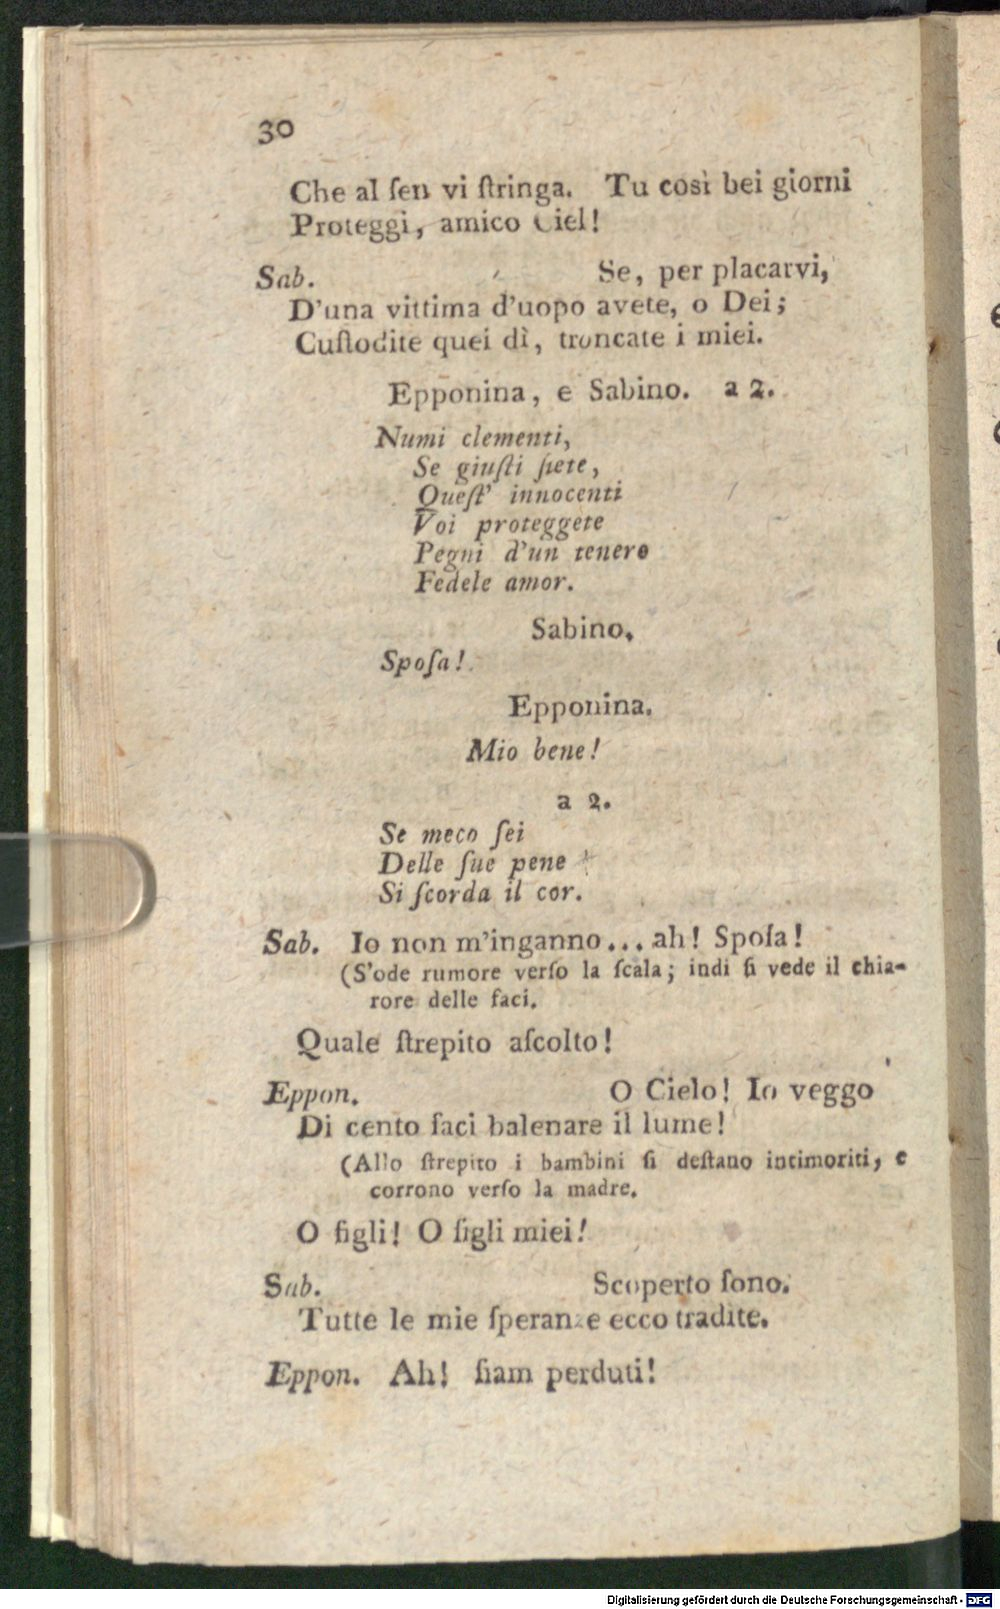 30
Che al ſen vi ſtringa. Tu così bei giorni
Proteggi, amico Ciel!
Sab. Se, per placarvi,
D'una vittima d'uopo avete, o Dei;
Cuſtodite quei dì, troncate i miei.
Epponina, e Sabino. a 2.
Numi clementi,
Se giuſti ſiete,
Queſt' innocenti
Voi proteggete
Pegni d'un tenero
Fedele amor.
Sabino.
Spoſa!
Epponina.
Mio bene!
a 2.
Se meco ſei
Delle ſue pene
Si ſcorda il cor.
Sab. Io non m'inganno... ah! Spoſa!
(S'ode rumore verſo la ſcala; indi ſi vede il chia-
rore delle faci.
Quale ſtrepito aſcolto!
Eppon. O Cielo! Io veggo
Di cento faci balenare il lume!
(Allo ſtrepito i bambini ſi deſtano intimoriti, e
corrono verſo la madre.
O figli! O figli miei!
Sab. Scoperto ſono.
Tutte le mie ſperanze ecco tradite.
Eppon. Ah! ſiam perduti!
Digitalisierung gefördert durch die Deutsche Forschungsgemeinschaft - DFG